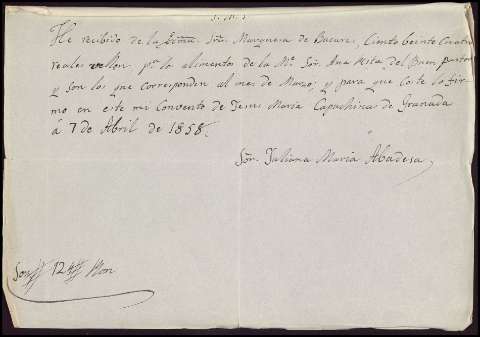 J. M. J.
He recibido de la Exma. Sra. Marquesa de Bacares, Ciento beinte Cuatro
reales vellon, pr. lo alimentos de la Me. Sor. Ana Rosa del Buen pastor
y son los que corresponden al mes de Marzo; y para que coste lo fir-
mo en este mi Convento de Jesus Maria Capuchinas de Granada
á 7 de Abril de 1858.
Sor. Juliana Maria Abadesa,
Son 124 Rvon